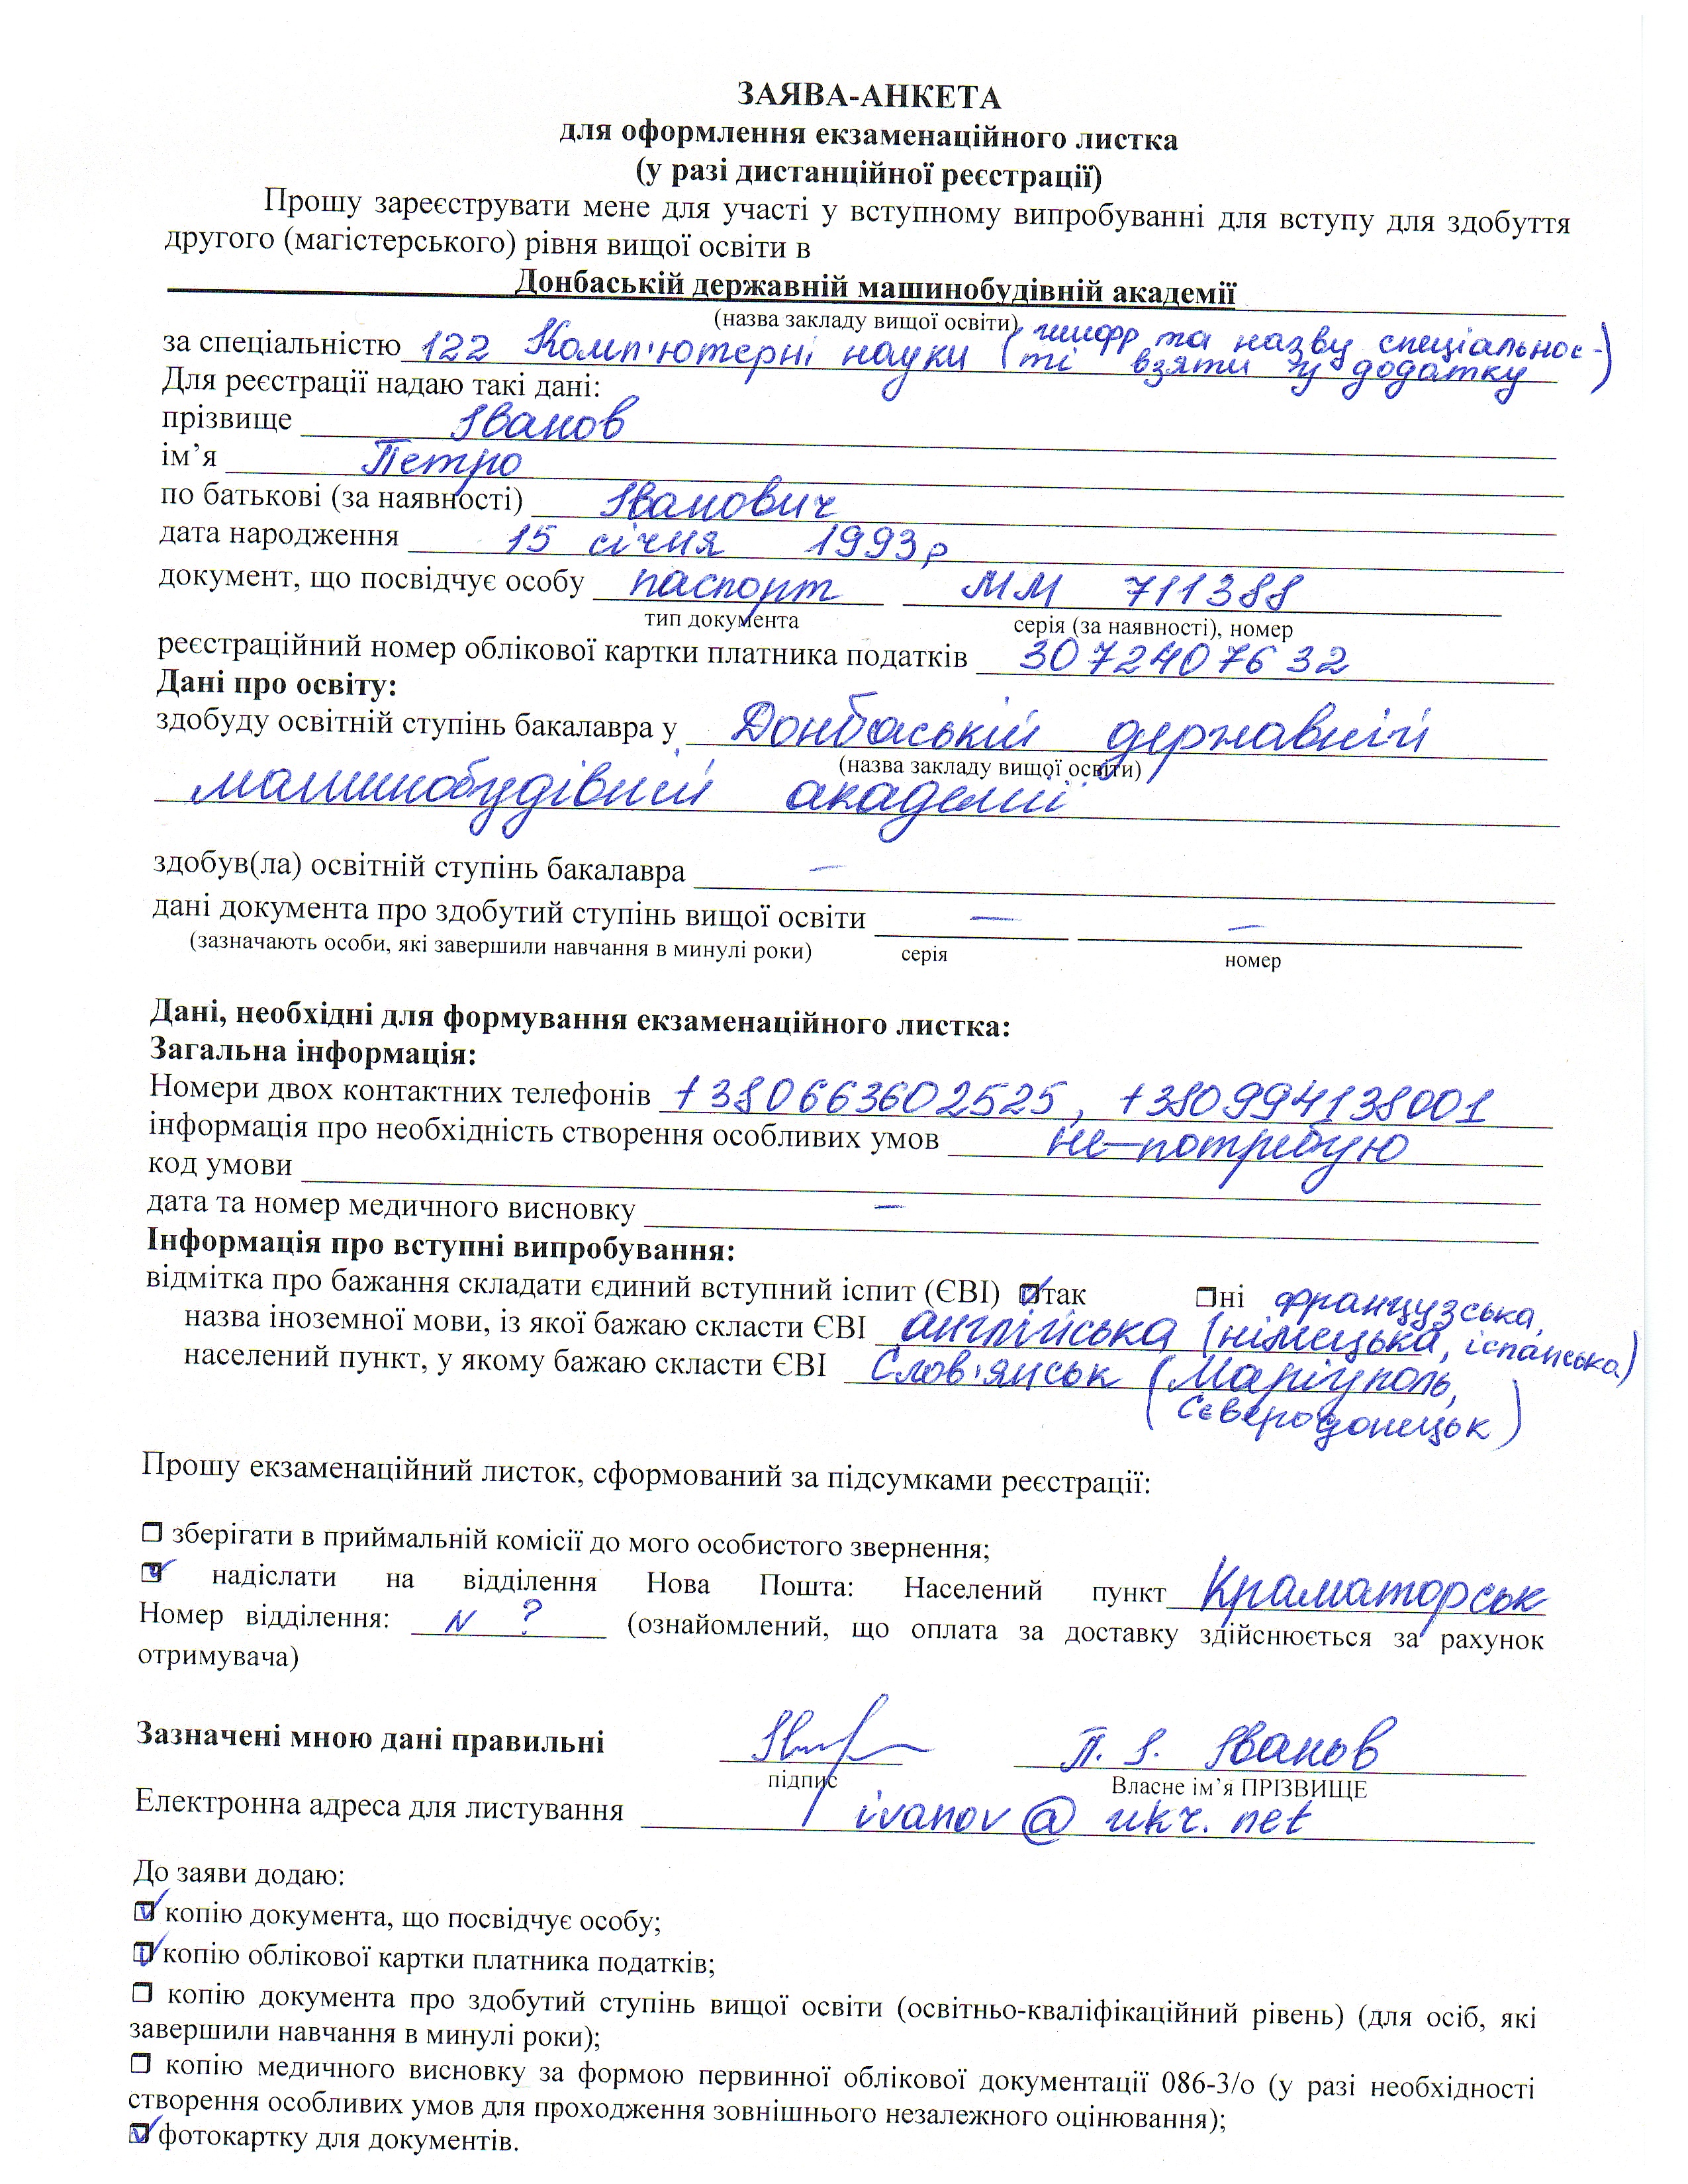 ЗАЯВА-АНКЕТА
для оформлення екзаменаційного листка
(у разі дистанційної реєстрації)
Прошу зареєструвати мене для участі у вступному випробуванні для вступу для здобуття
другого (магістерського) рівня вищої освіти в
Донбаській державній машинобудівній академії
(назва закладу вищої освіти)
за спеціальністю 122 Комп'ютерні науки (шифр та назву спеціальнос-
ті взяти у додатку)
Для реєстрації надаю такі дані:
прізвище Іванов
ім’я Петро
по батькові (за наявності) Іванович
дата народження 15 січня 1993р
документ, що посвідчує особу паспорт ММ 711388
тип документа серія (за наявності), номер
реєстраційний номер облікової картки платника податків 3072407632
Дані про освіту:
здобуду освітній ступінь бакалавра у Донбаській державній
(назва закладу вищої освіти)
машинобудівній академії
здобув(ла) освітній ступінь бакалавра –
дані документа про здобутий ступінь вищої освіти — –
(зазначають особи, які завершили навчання в минулі роки) серія номер
Дані, необхідні для формування екзаменаційного листка:
Загальна інформація:
Номери двох контактних телефонів +380663602525, +380994138001
інформація про необхідність створення особливих умов не потребую
код умови
дата та номер медичного висновку –
Інформація про вступні випробування:
відмітка про бажання складати єдиний вступний іспит (ЄВІ) ☑так ❒ні французська,
назва іноземної мови, із якої бажаю скласти ЄВІ англійська (німецька, іспанська)
населений пункт, у якому бажаю скласти ЄВІ Слов'янськ (Маріуполь,
Сєвєродонецьк)
Прошу екзаменаційний листок, сформований за підсумками реєстрації:
❒ зберігати в приймальній комісії до мого особистого звернення;
☑ надіслати на відділення Нова Пошта: Населений пункт Краматорськ
Номер відділення: N ? (ознайомлений, що оплата за доставку здійснюється за рахунок
отримувача)
Зазначені мною дані правильні П. І. Іванов
підпис Власне ім’я ПРІЗВИЩЕ
Електронна адреса для листування ivanov@ukr.net
До заяви додаю:
☑ копію документа, що посвідчує особу;
☑ копію облікової картки платника податків;
❒ копію документа про здобутий ступінь вищої освіти (освітньо-кваліфікаційний рівень) (для осіб, які
завершили навчання в минулі роки);
❒ копію медичного висновку за формою первинної облікової документації 086-3/о (у разі необхідності
створення особливих умов для проходження зовнішнього незалежного оцінювання);
☑ фотокартку для документів.